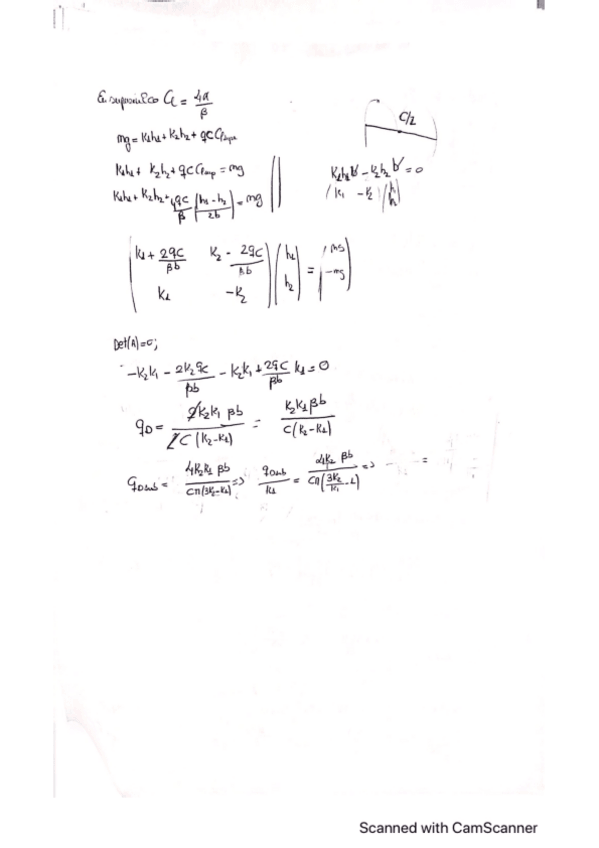 E. supersónico Cl = 4α/β
C/2
mg = k1h1 + k2h2 + qCCl
k1h1 + k2h2 + qCCl = mg
k1h1b - k2h2b = 0
k1h1 + k2h2 + 4qC/β (h1 - h2)/2b = mg
(k1 -k2)(h h)
(k1 + 2qC/βb k2 - 2qC/βb) (h1) = (mg)
(k1 -k2) (h2) (-mg)
Det(A)=0;
-k2k1 - 2k2qC/βb - k2k1 + 2qC/βb k1 = 0
qD = 2k2k1βb/2C(k2-k1) = k2k1βb/C(k2-k1)
qDsub = 4k2k1βb/Cπ(3k2-k1) => qDsub/k1 = 4k2βb/Cπ(3k2/k1 - 1) => =
Scanned with CamScanner